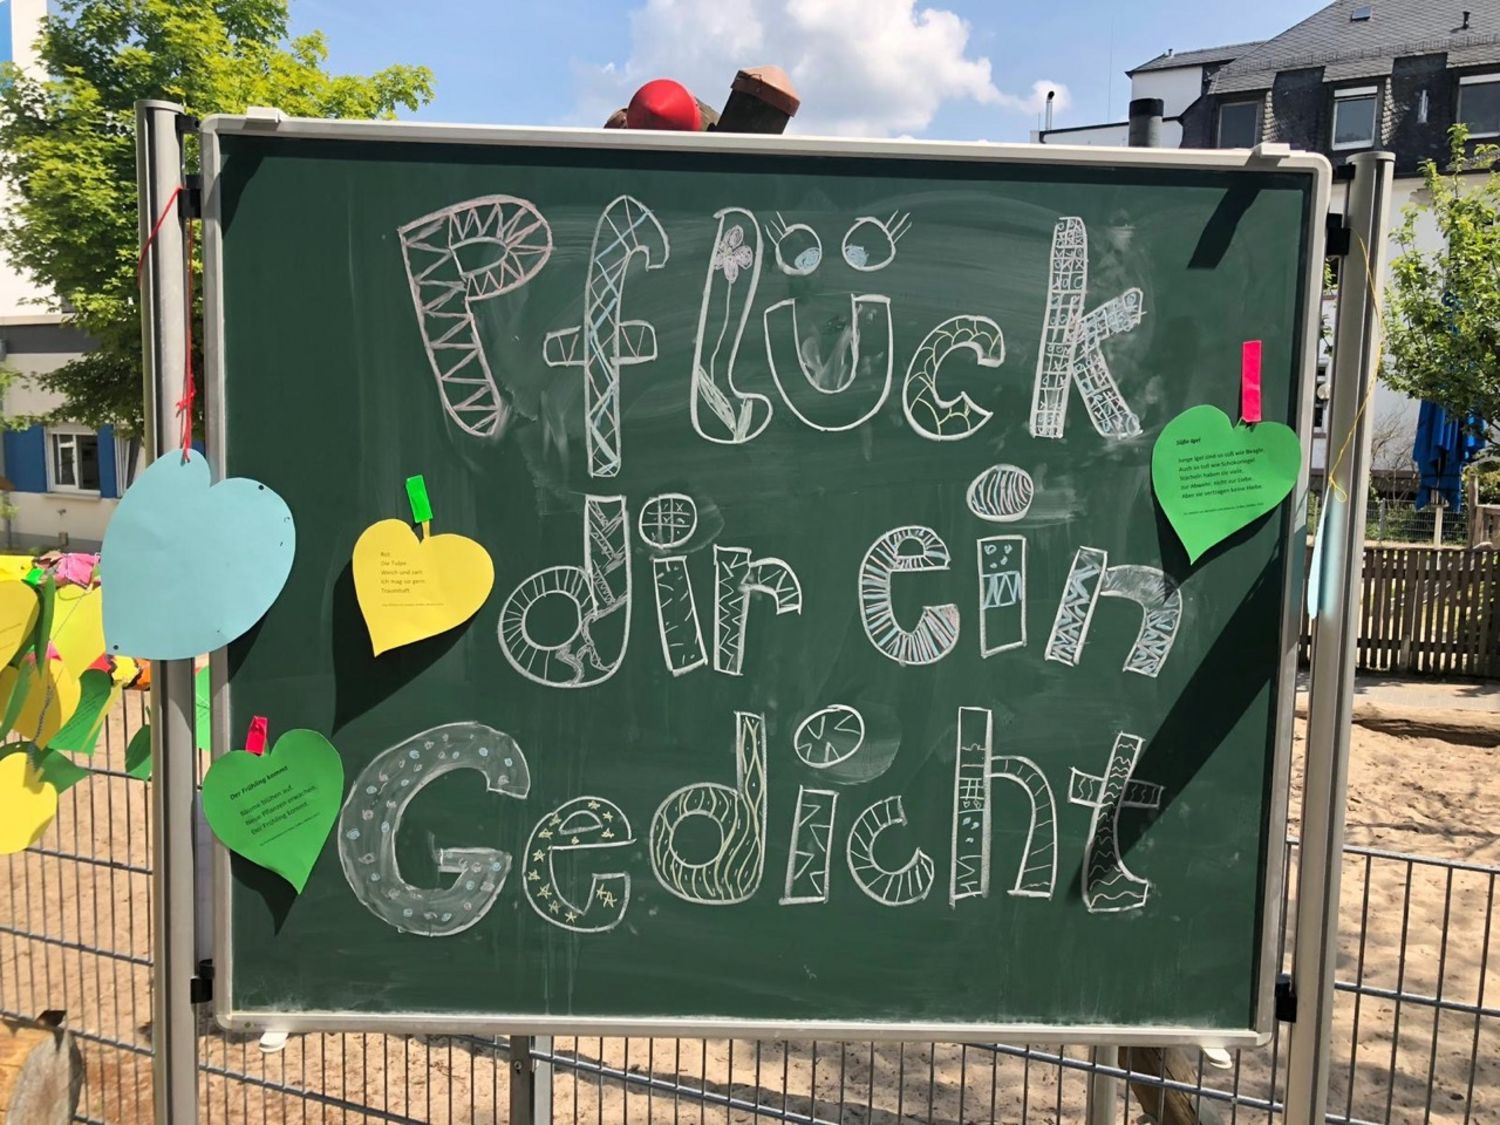 Pflück
dir ein
Gedicht
Süße Igel
Junge Igel sind so süß wie Beagle.
Auch so toll wie Schokoriegel.
Stacheln haben sie viele,
zur Abwehr, nicht zur Liebe.
Aber sie vertragen keine Hiebe.
Rot
Die Tulpe
Weich und zart.
Ich mag sie gern.
Traumhaft.
Der Frühling kommt
Bäume blühen auf.
Neue Pflanzen erwachen.
Der Frühling kommt.